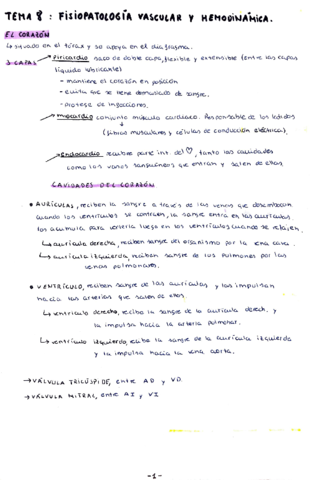 TEMA 8: FISIOPATOLOGÍA VASCULAR Y HEMODINÁMICA.
EL CORAZÓN
↳ situado en el tórax y se apoya en el diafragma.
3 CAPAS → Pericardio saco de doble capa, flexible y extensible (entre las capas
líquido lubricante)
- mantiene el corazón en posición
- evita que se llene demasiado de sangre.
- protege de infecciones.
→ miocardio conjunto músculo cardíaco. Responsable de los latidos
(fibras musculares y células de conducción eléctrica).
→ endocardio recubre parte int. del ♡, tanto las cavidades
como los vasos sanguíneos que entran y salen de ellas.
CAVIDADES DEL CORAZÓN
• AURÍCULAS, reciben la sangre a través de las venas que desembocan
cuando los ventrículos se contraen, la sangre entra en las aurículas
los acumula para verterla luego en los ventrículos cuando se relajen.
↳ aurícula derecha, reciben sangre del organismo por la vena cava.
↳ aurícula izquierda, reciben sangre de los pulmones por las
venas pulmonares.
• VENTRÍCULO, reciben sangre de las aurículas y las impulsan
hacia las arterias que salen de ellos.
↳ ventrículo derecho, recibe la sangre de la aurícula derech. y
la impulsa hacia la arteria pulmonar.
↳ ventrículo izquierdo, recibe la sangre de la aurícula izquierda
y la impulsa hacia la vena aorta.
→ VÁLVULA TRICÚSPIDE, entre AD y VD.
→ VÁLVULA MITRAL, entre AI y VI
-1-